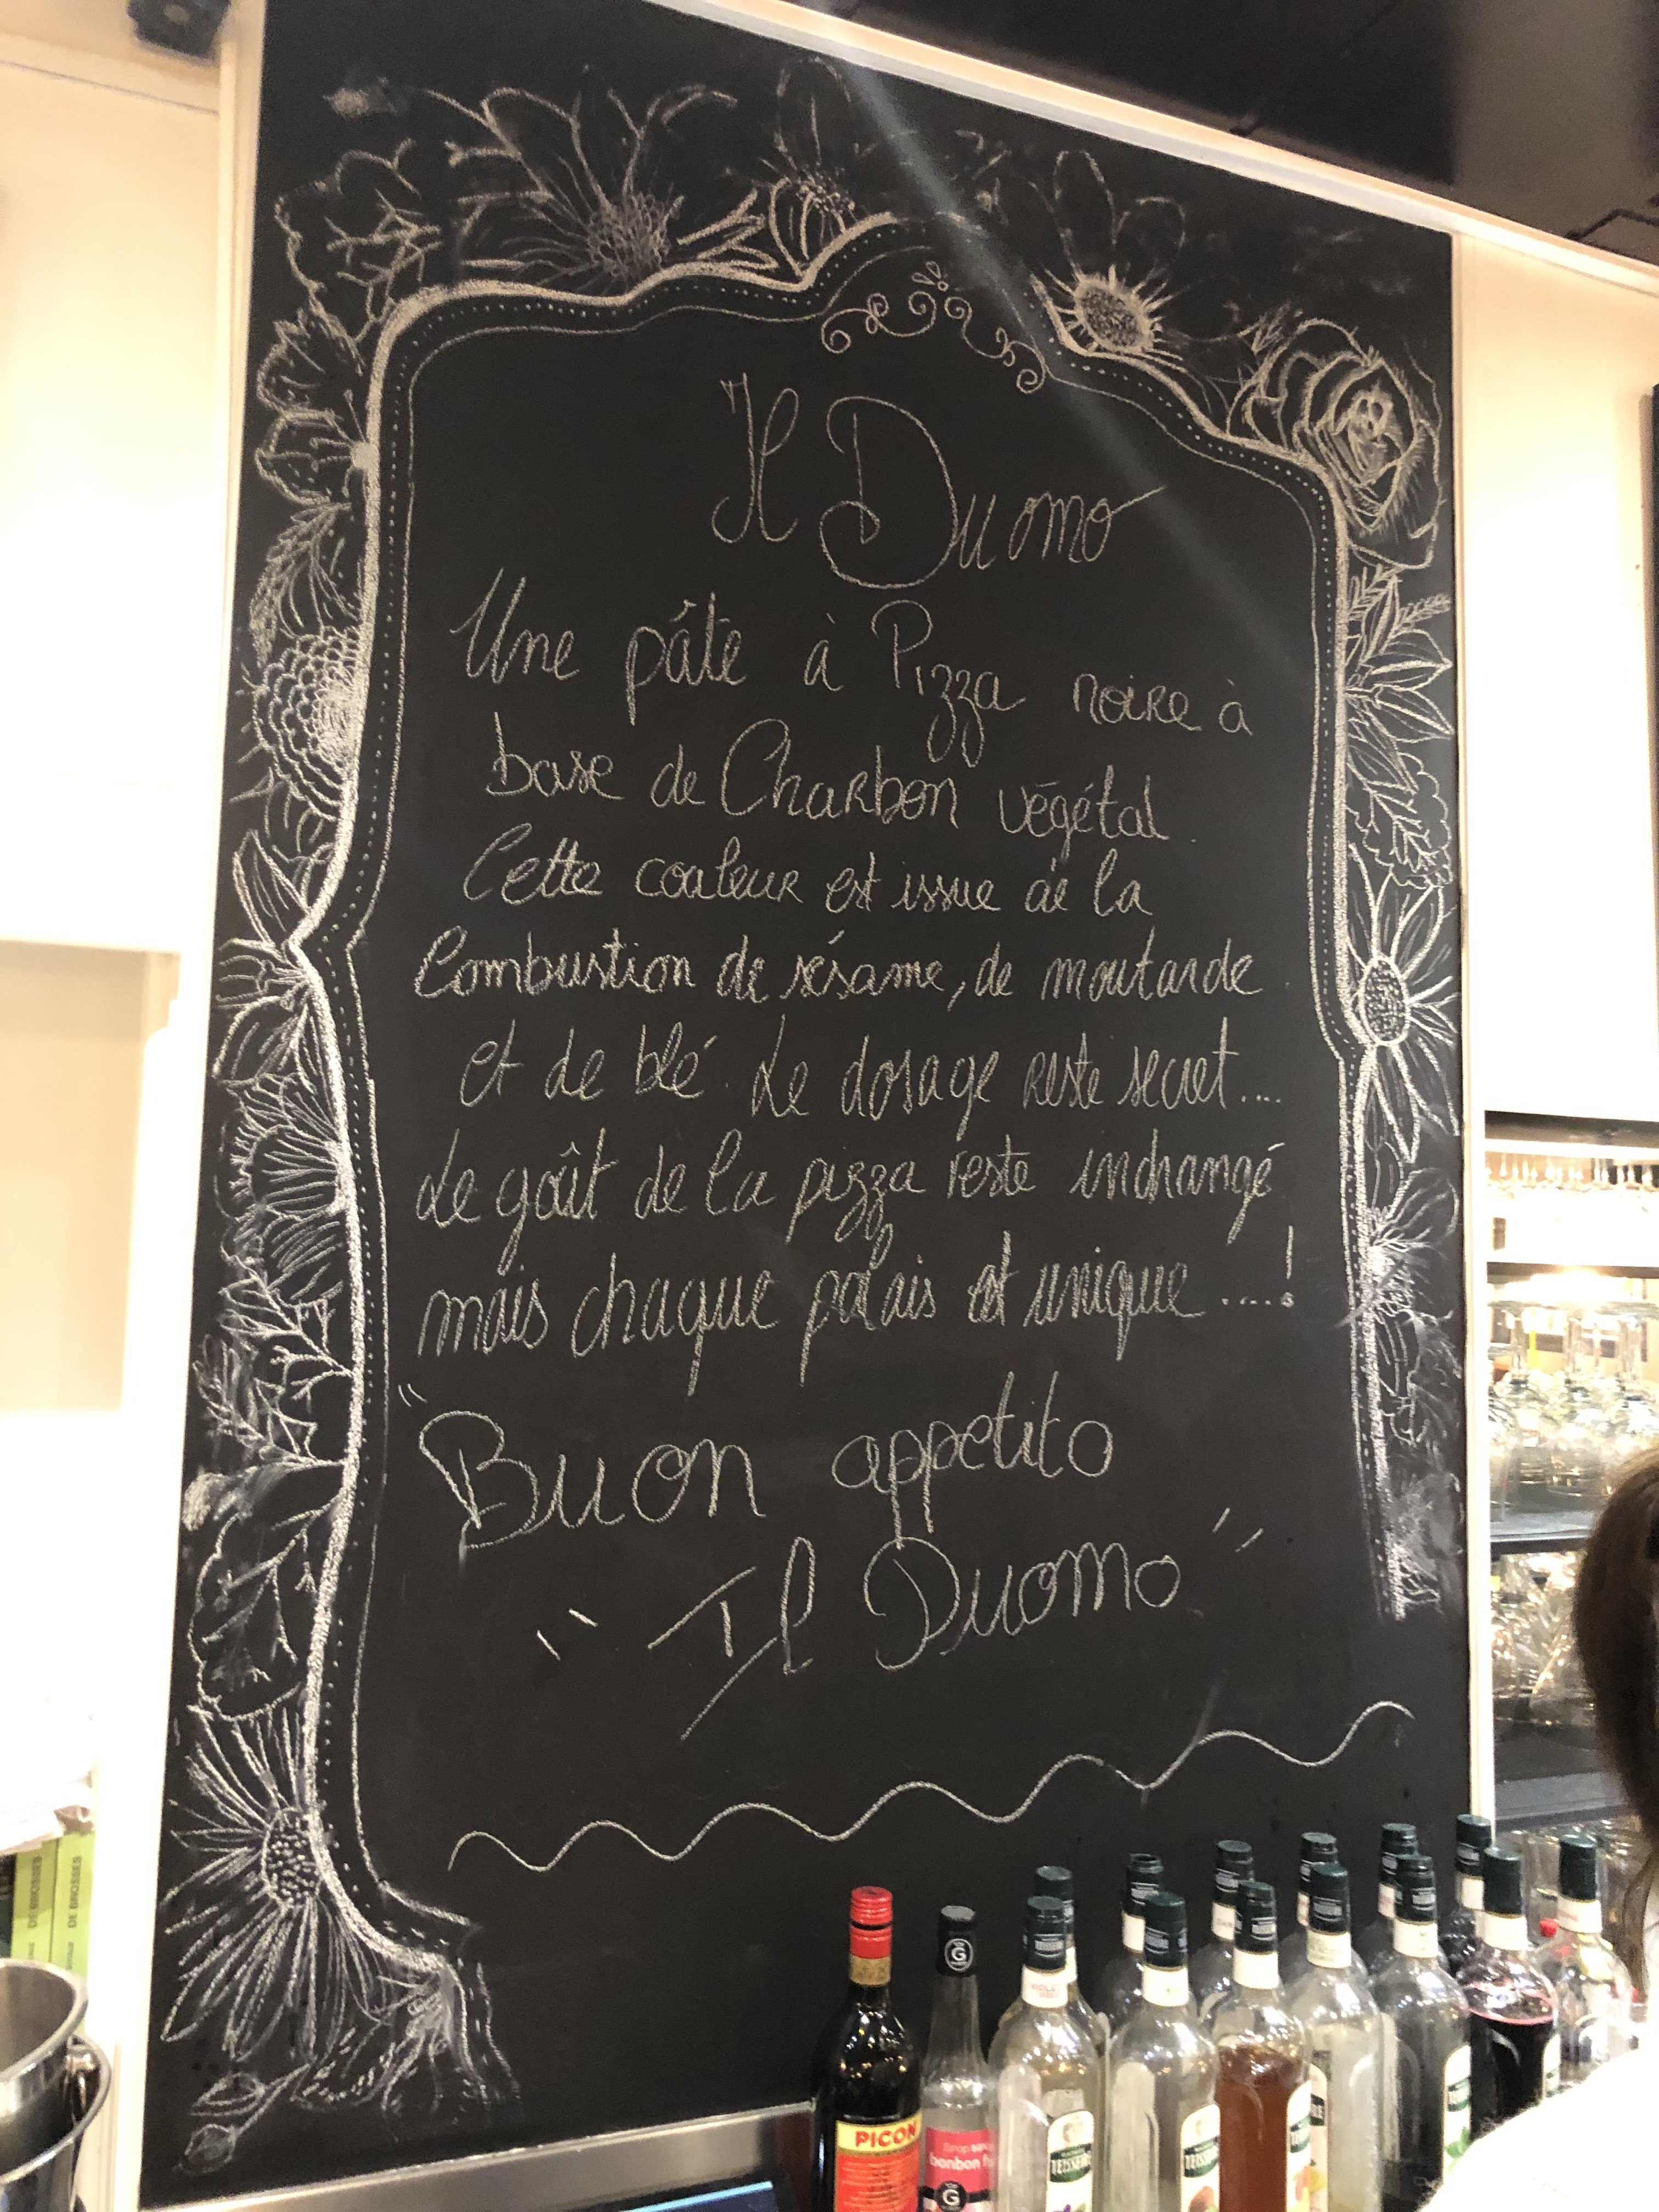 Il Duomo
Une pâte à Pizza noire à
base de Charbon végétal.
Cette couleur est issue de la
Combustion de sésame, de moutarde
et de blé. Le dosage reste secret....
Le goût de la pizza reste inchangé
mais chaque palais est unique ....!
"Buon appetito
"Il Duomo"
DE BROSSES
DE BROSSES
PICON
bonbon
G
G
TEISSEIRE